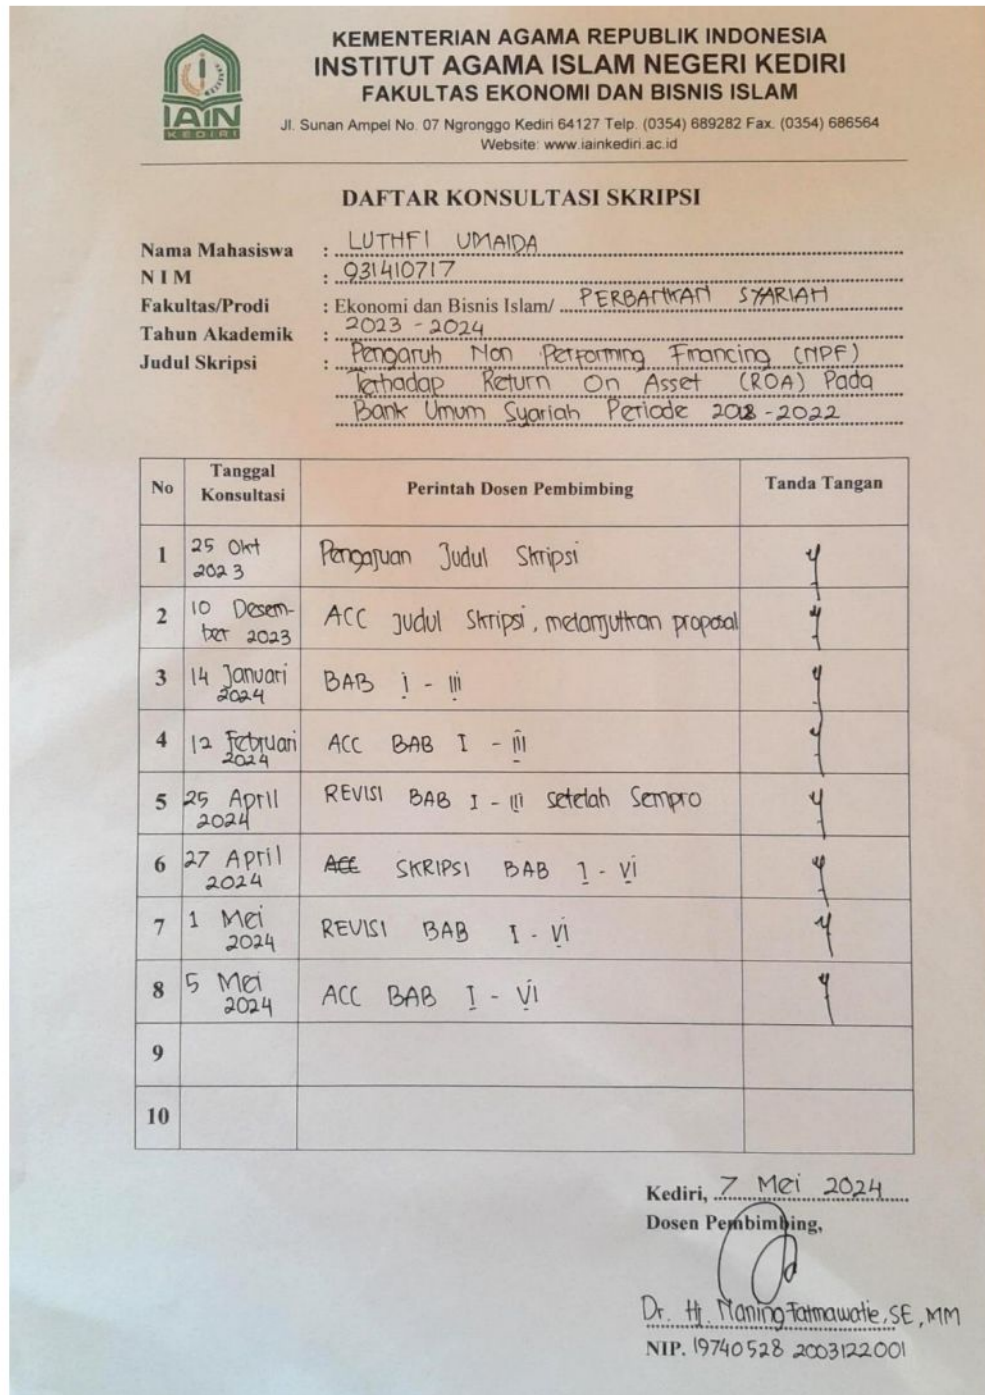 KEMENTERIAN AGAMA REPUBLIK INDONESIA
INSTITUT AGAMA ISLAM NEGERI KEDIRI
FAKULTAS EKONOMI DAN BISNIS ISLAM
Jl. Sunan Ampel No. 07 Ngronggo Kediri 64127 Telp. (0354) 689282 Fax. (0354) 686564
Website: www.iainkediri.ac.id
IAIN
KEDIRI
DAFTAR KONSULTASI SKRIPSI
Nama Mahasiswa : LUTHFI UMAIDA
NIM : 931410717
Fakultas/Prodi : Ekonomi dan Bisnis Islam/ PERBANKAN SYARIAH
Tahun Akademik : 2023 - 2024
Judul Skripsi : Pengaruh Non Performing Financing (NPF)
Terhadap Return On Asset (ROA) Pada
Bank Umum Syariah Periode 2018 - 2022
No Tanggal Konsultasi Perintah Dosen Pembimbing Tanda Tangan
1 25 Okt 2023 Pengajuan Judul Skripsi
2 10 Desem-ber 2023 ACC Judul Skripsi, melanjutkan proposal
3 14 Januari 2024 BAB I - III
4 12 Februari 2024 ACC BAB I - III
5 25 April 2024 REVISI BAB I - III setelah Sempro
6 27 April 2024 ACC SKRIPSI BAB I - VI
7 1 Mei 2024 REVISI BAB I - VI
8 5 Mei 2024 ACC BAB I - VI
9
10
Kediri, 7 Mei 2024
Dosen Pembimbing,
Dr. Hj. Naning Fatmawatie, SE, MM
NIP. 19740528 2003122001